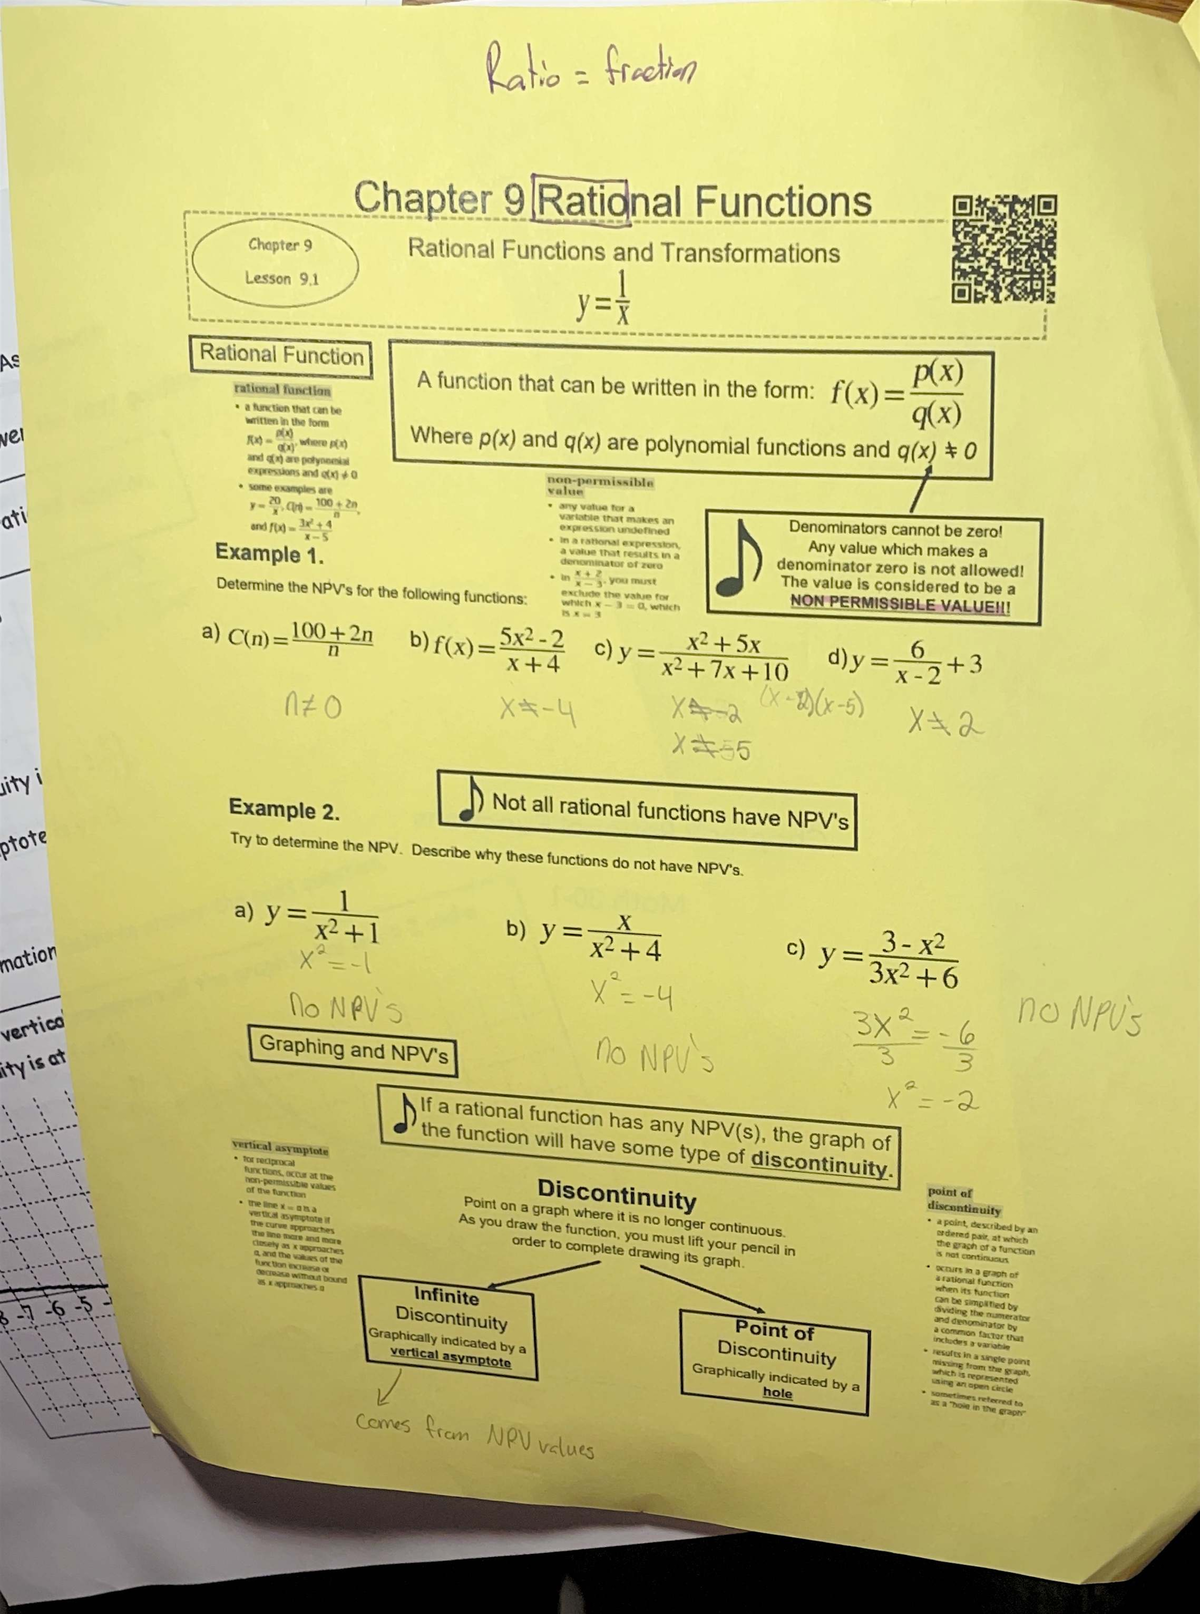 Ratio = fraction
Chapter 9 Rational Functions
Chapter 9
Lesson 9.1
Rational Functions and Transformations
y = 1/x
Rational Function
A function that can be written in the form: f(x) = p(x)/q(x)
Where p(x) and q(x) are polynomial functions and q(x) ≠ 0
rational function
• a function that can be
written in the form
f(x) = p(x)/q(x), where p(x)
and q(x) are polynomial
expressions and q(x) ≠ 0
• some examples are
y = 20/x, C(n) = 100 + 2n/n,
and f(x) = 3x² + 4/x - 5
non-permissible
value
• any value for a
variable that makes an
expression undefined
• in a rational expression,
a value that results in a
denominator of zero
• in x + 2/x - 3, you must
exclude the value for
which x - 3 = 0, which
is x = 3
Denominators cannot be zero!
Any value which makes a
denominator zero is not allowed!
The value is considered to be a
NON PERMISSIBLE VALUE!!!
Example 1.
Determine the NPV's for the following functions:
a) C(n) = 100 + 2n/n b) f(x) = 5x² - 2/x + 4 c) y = x² + 5x/x² + 7x + 10 d) y = 6/x - 2 + 3
n ≠ 0 x ≠ -4 x ≠ -2 (x - 2)(x - 5) x ≠ 2
x ≠ -5
Not all rational functions have NPV's
Example 2.
Try to determine the NPV. Describe why these functions do not have NPV's.
a) y = 1/x² + 1 b) y = x/x² + 4 c) y = 3 - x²/3x² + 6
x² = -1 x² = -4 3x²/3 = -6/3 no NPV's
no NPV's no NPV's x² = -2
Graphing and NPV's
If a rational function has any NPV(s), the graph of
the function will have some type of discontinuity.
vertical asymptote
• for reciprocal
functions, occur at the
non-permissible values
of the function
• the line x = a is a
vertical asymptote if
the curve approaches
the line more and more
closely as x approaches
a, and the values of the
function increase or
decrease without bound
as x approaches a
Discontinuity
Point on a graph where it is no longer continuous.
As you draw the function, you must lift your pencil in
order to complete drawing its graph.
point of
discontinuity
• a point, described by an
ordered pair, at which
the graph of a function
is not continuous
• occurs in a graph of
a rational function
when its function
can be simplified by
dividing the numerator
and denominator by
a common factor that
includes a variable
• results in a single point
missing from the graph,
which is represented
using an open circle
• sometimes referred to
as a "hole in the graph"
Infinite
Discontinuity
Graphically indicated by a
vertical asymptote
Point of
Discontinuity
Graphically indicated by a
hole
comes from NPV values
As
ati
uity i
ptote
mation
vertica
ity is at
-7 -6 -5